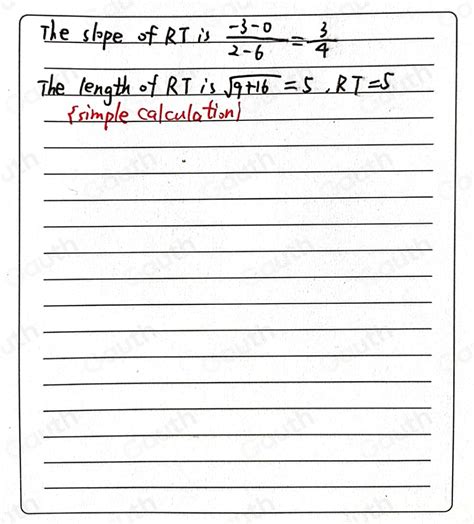 The slope of RT is \frac{-3-0}{2-6} = \frac{3}{4}
The length of RT is \sqrt{9+16} = 5 , RT = 5
{simple calculation}
Gauth